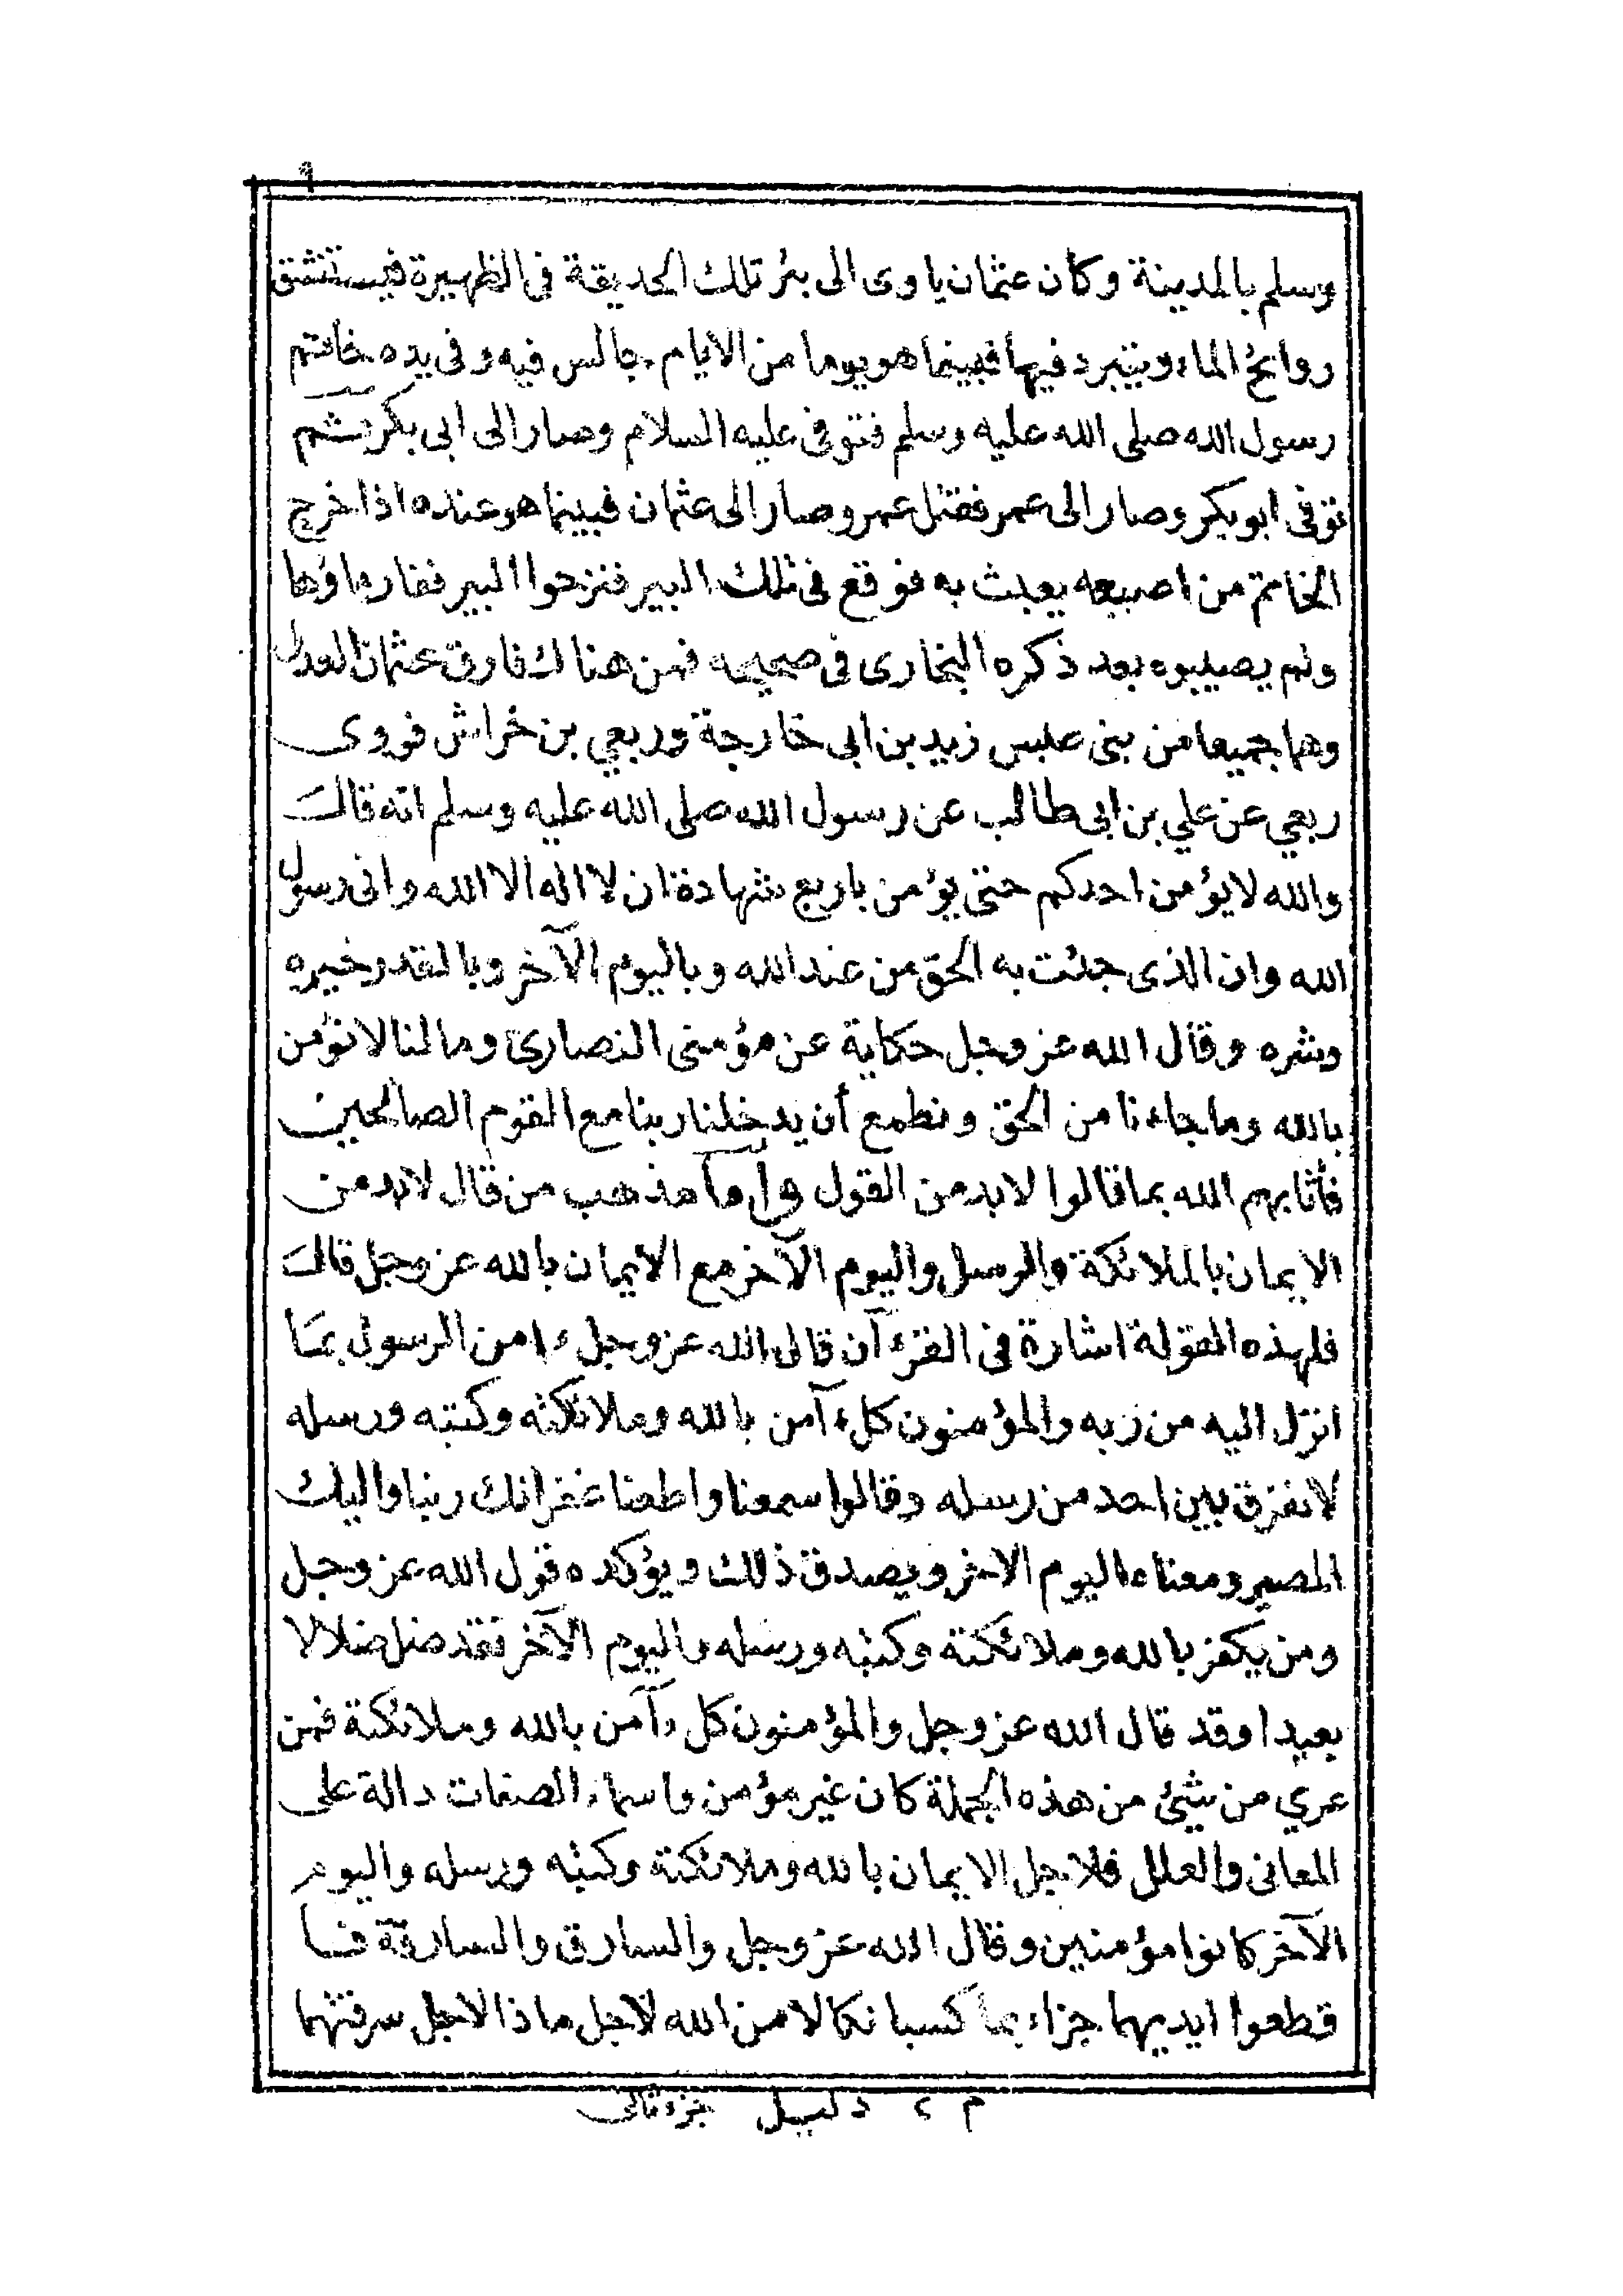 ٩
وسلم بالمدينة وكان عثمان ياوى الى بئر تلك الحديقة فى الظهيرة فيستنشق
روايحُ الماء ويتبرد فيها فبينما هو يوما من الايام جالس فيه وفى يده خاتم
رسول الله صلى الله عليه وسلم فتوفى عليه السلام وصار الى ابى بكر ثم
توفى ابو بكر وصار الى عمر فقتل عمر وصار الى عثمان فبينما هو عنده اذا خرج
الخاتم من اصبعه يعبث به فوقع فى تلك البير فنزحوا البير فغار ماؤها
ولم يصيبوه بعد ذكره البخارى فى صحيحه فمن هناك فارق عثمان العدل
وهما جميعا من بنى عبس زيد بن ابى خارجة وربعي بن خراش فروى
ربعي عن علي بن ابى طالب عن رسول الله صلى الله عليه وسلم انه قال
والله لا يؤمن احدكم حتى يؤمن باربع شهادة ان لا اله الا الله وانى رسول
الله وان الذى جئت به الحق من عند الله وباليوم الآخر وبالقدر خيره
وشره وقال الله عز وجل حكاية عن مؤمنى النصارى وما لنا لا نؤمن
بالله وما جاءنا من الحق ونطمع أن يدخلنا ربنا مع القوم الصالحين
فأثابهم الله بما قالوا لا بد من القول وأما مذهب من قال لا بد من
الايمان بالملائكة والرسل واليوم الآخر مع الايمان بالله عز وجل قال
فلهذه المقولة اشارة فى القرءآن قال الله عز وجل ءامن الرسول بما
انزل اليه من ربه والمؤمنون كل ءآمن بالله وملائكته وكتبه ورسله
لا نفرق بين احد من رسله وقالوا سمعنا واطعنا غفرانك ربنا واليك
المصير ومعناه اليوم الاخر ويصدق ذلك ويؤكده قول الله عز وجل
ومن يكفر بالله وملائكتة وكتبه ورسله واليوم الآخر فقد ضل ضلالا
بعيدا وقد قال الله عز وجل والمؤمنون كل ءآمن بالله وملائكتة فمن
عري من شيئ من هذه الجملة كان غير مؤمن واسماء الصفات دالة على
المعانى والعلل فلاجل الايمان بالله وملائكتة وكتبه ورسله واليوم
الآخر كانوا مؤمنين وقال الله عز وجل والسارق والسارقة فا
قطعوا ايديهما جزاء بما كسبا نكالا من الله لأجل ماذا لاجل سرقتهما
م ٢ دليل جزء ثانى